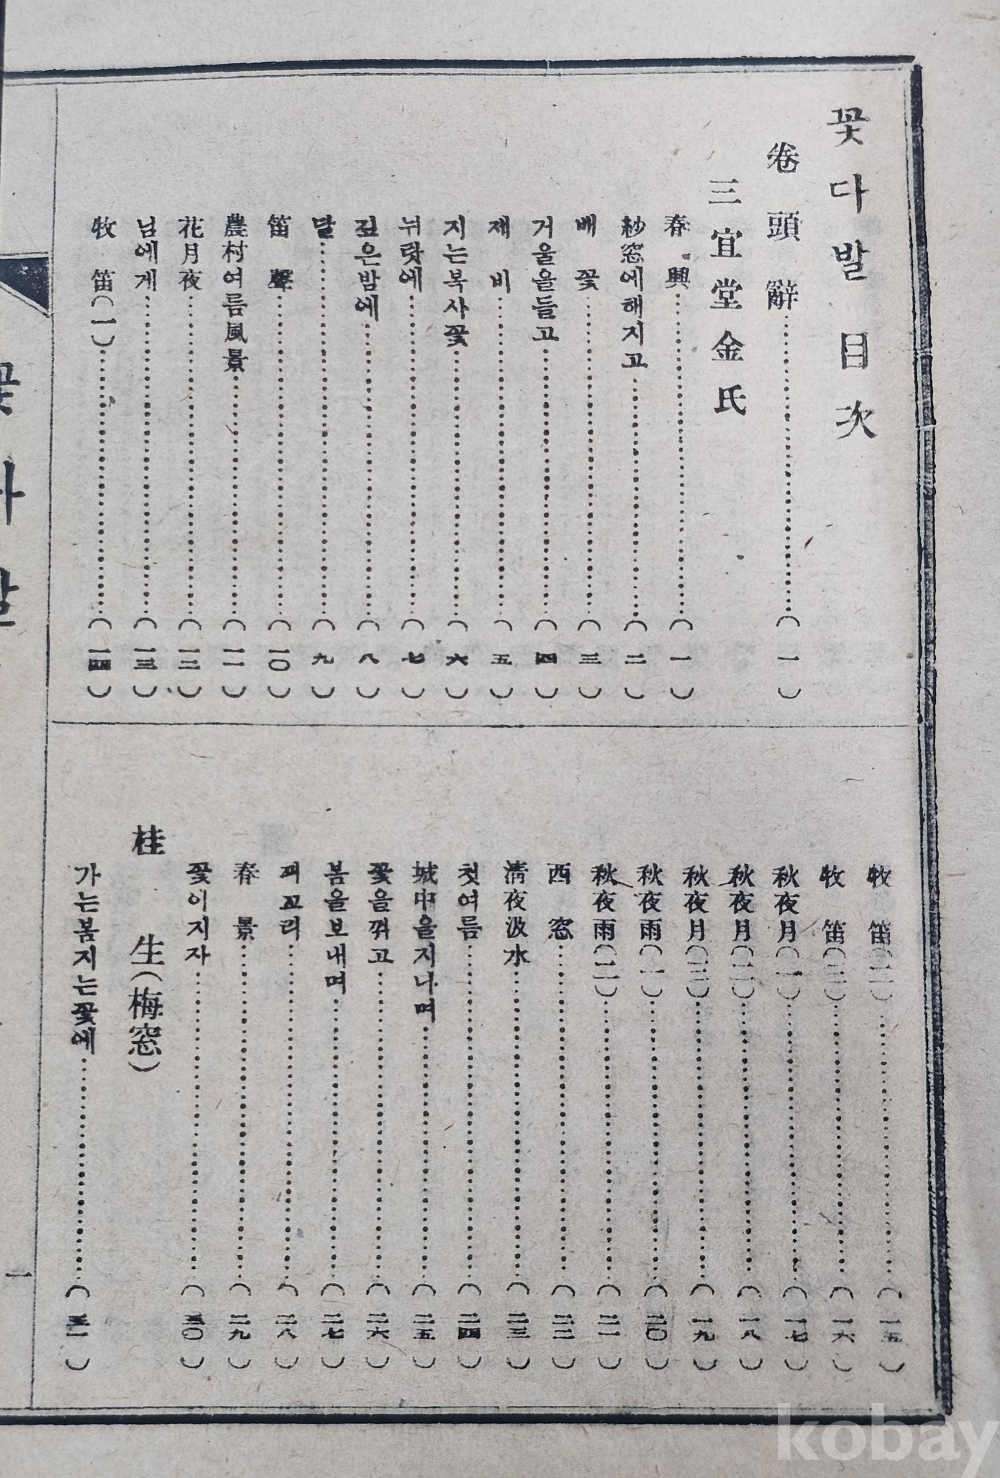 꽃다발目次
卷頭辭……(一)
三宜堂金氏
春興……(一)
紗窓에해지고……(二)
배꽃……(三)
거울을들고……(四)
제비……(五)
지는복사꽃……(六)
뉘랏에……(七)
깊은밤에……(八)
달……(九)
笛聲……(一〇)
農村여름風景……(一一)
花月夜……(一二)
님에게……(一三)
牧笛(一)……(一四)
牧笛(二)……(一五)
牧笛(三)……(一六)
秋夜月(一)……(一七)
秋夜月(二)……(一八)
秋夜月(三)……(一九)
秋夜雨(一)……(二〇)
秋夜雨(二)……(二一)
西窓……(二二)
淸夜汲水……(二三)
첫여름……(二四)
城中을지나며……(二五)
꽃을꺾고……(二六)
봄을보내며……(二七)
꾀꼬리……(二八)
春景……(二九)
꽃이지자……(三〇)
桂生(梅窓)
가는봄지는꽃에……(三一)
一
kobay